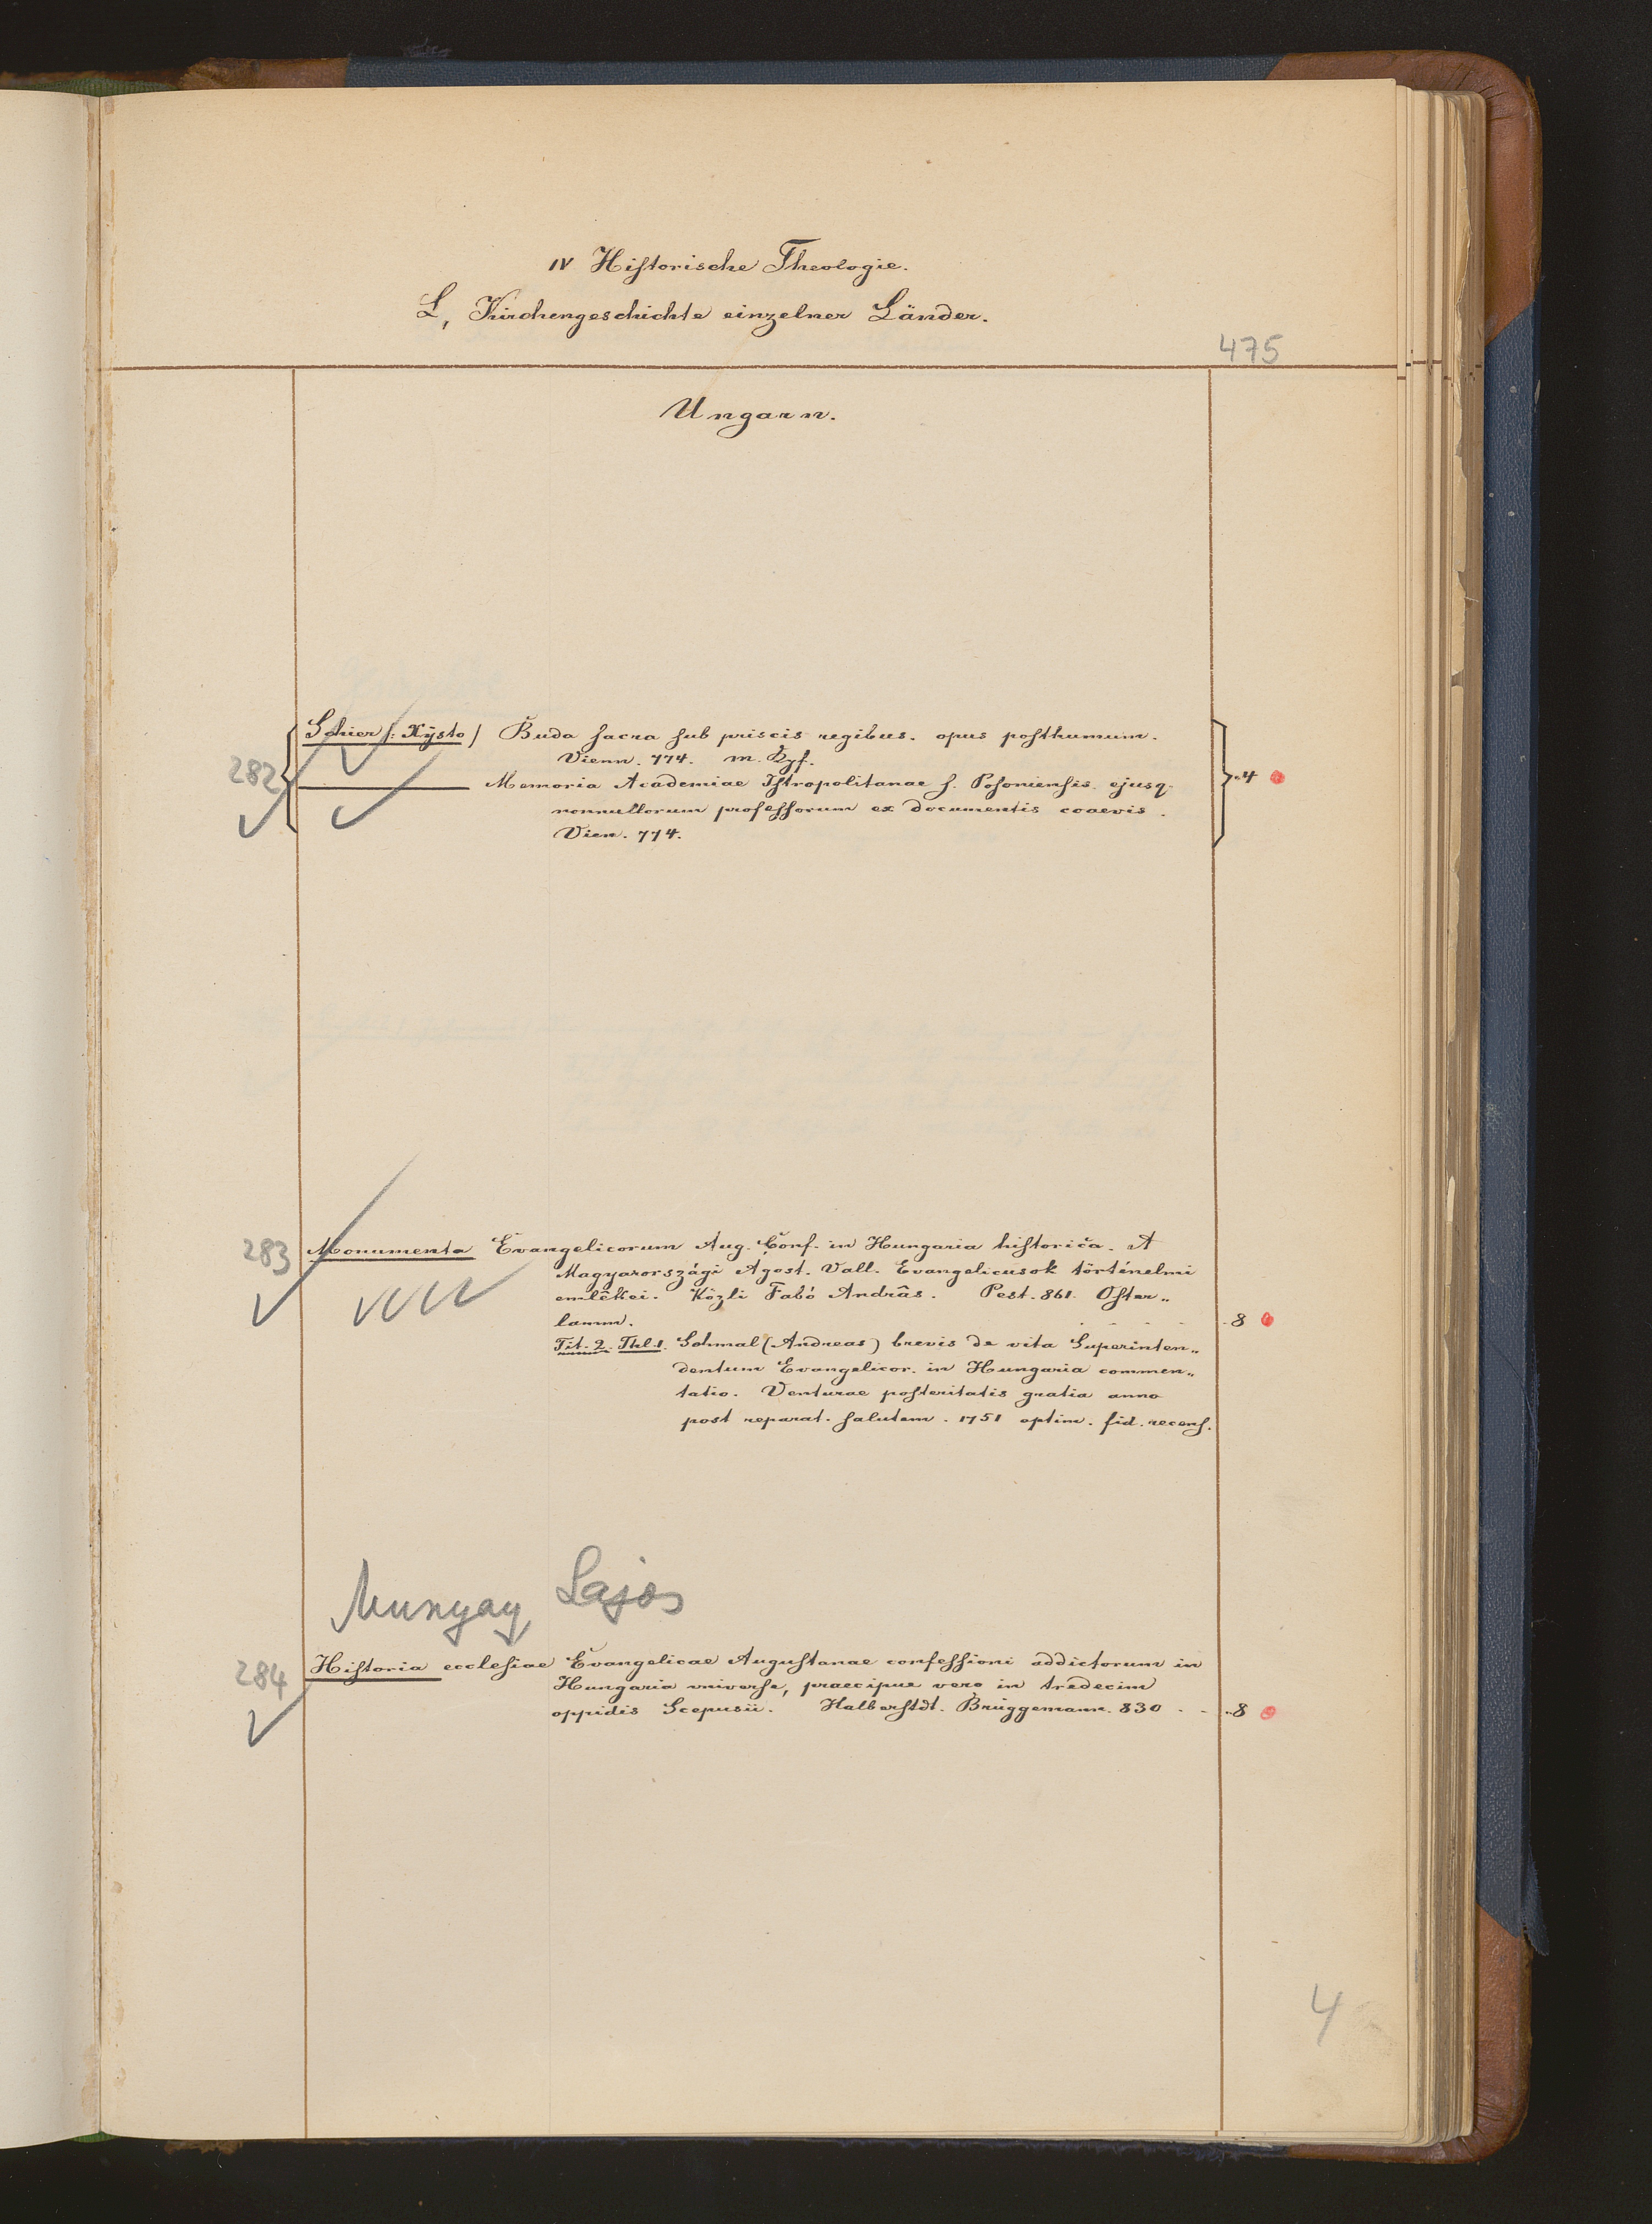 IV Historische Theologie.
L, Kirchengeschichte einzelner Länder.
475
Ungarn.
Schier /: Xysto / Buda sacra sub priscis regibus. opus posthumum.
Vienn. 774. m. Kpf.
282
Memoria Academiae Istropolitanae s. Posoniensis. ejusq.
4
nonnullorum professorum ex documentis coaevis.
Vien. 774.
283 Monumenta Evangelicorum Aug. Conf. in Hungaria historica. A
Magyarországi Agost. Vall. Evangelicusok történelmi
emlêkei. Közli Fabó Andrâs. Pest. 861. Oster„
lamm. - - - - 8
Tit. 2. Thl. 1. Schmal (Andreas) brevis de vita Superinten„
dentum Evangelicor. in Hungaria commen„
tatio. Venturae posteritatis gratia anno
post reparat. salutem. 1751 optim. fid. recens.
Munyay Lajos
284 Historia ecclesiae Evangelicae Augustanae confessioni addictorum in
Hungaria universe, praecipue vero in tredecim
oppidis Scepusii. Halberstdt. Brüggemann. 830 - - 8
4